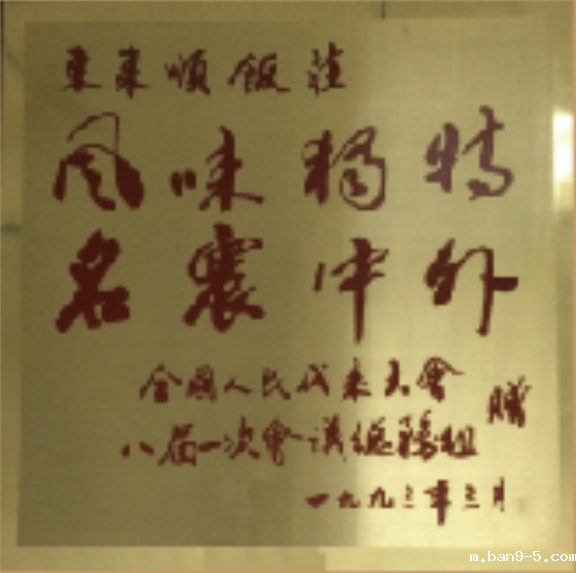 東來順飯莊
风味獨特
名震中外
全國人民代表大會
八届一次會議總務組
贈
一九九三年三月
m.ban9-5.com